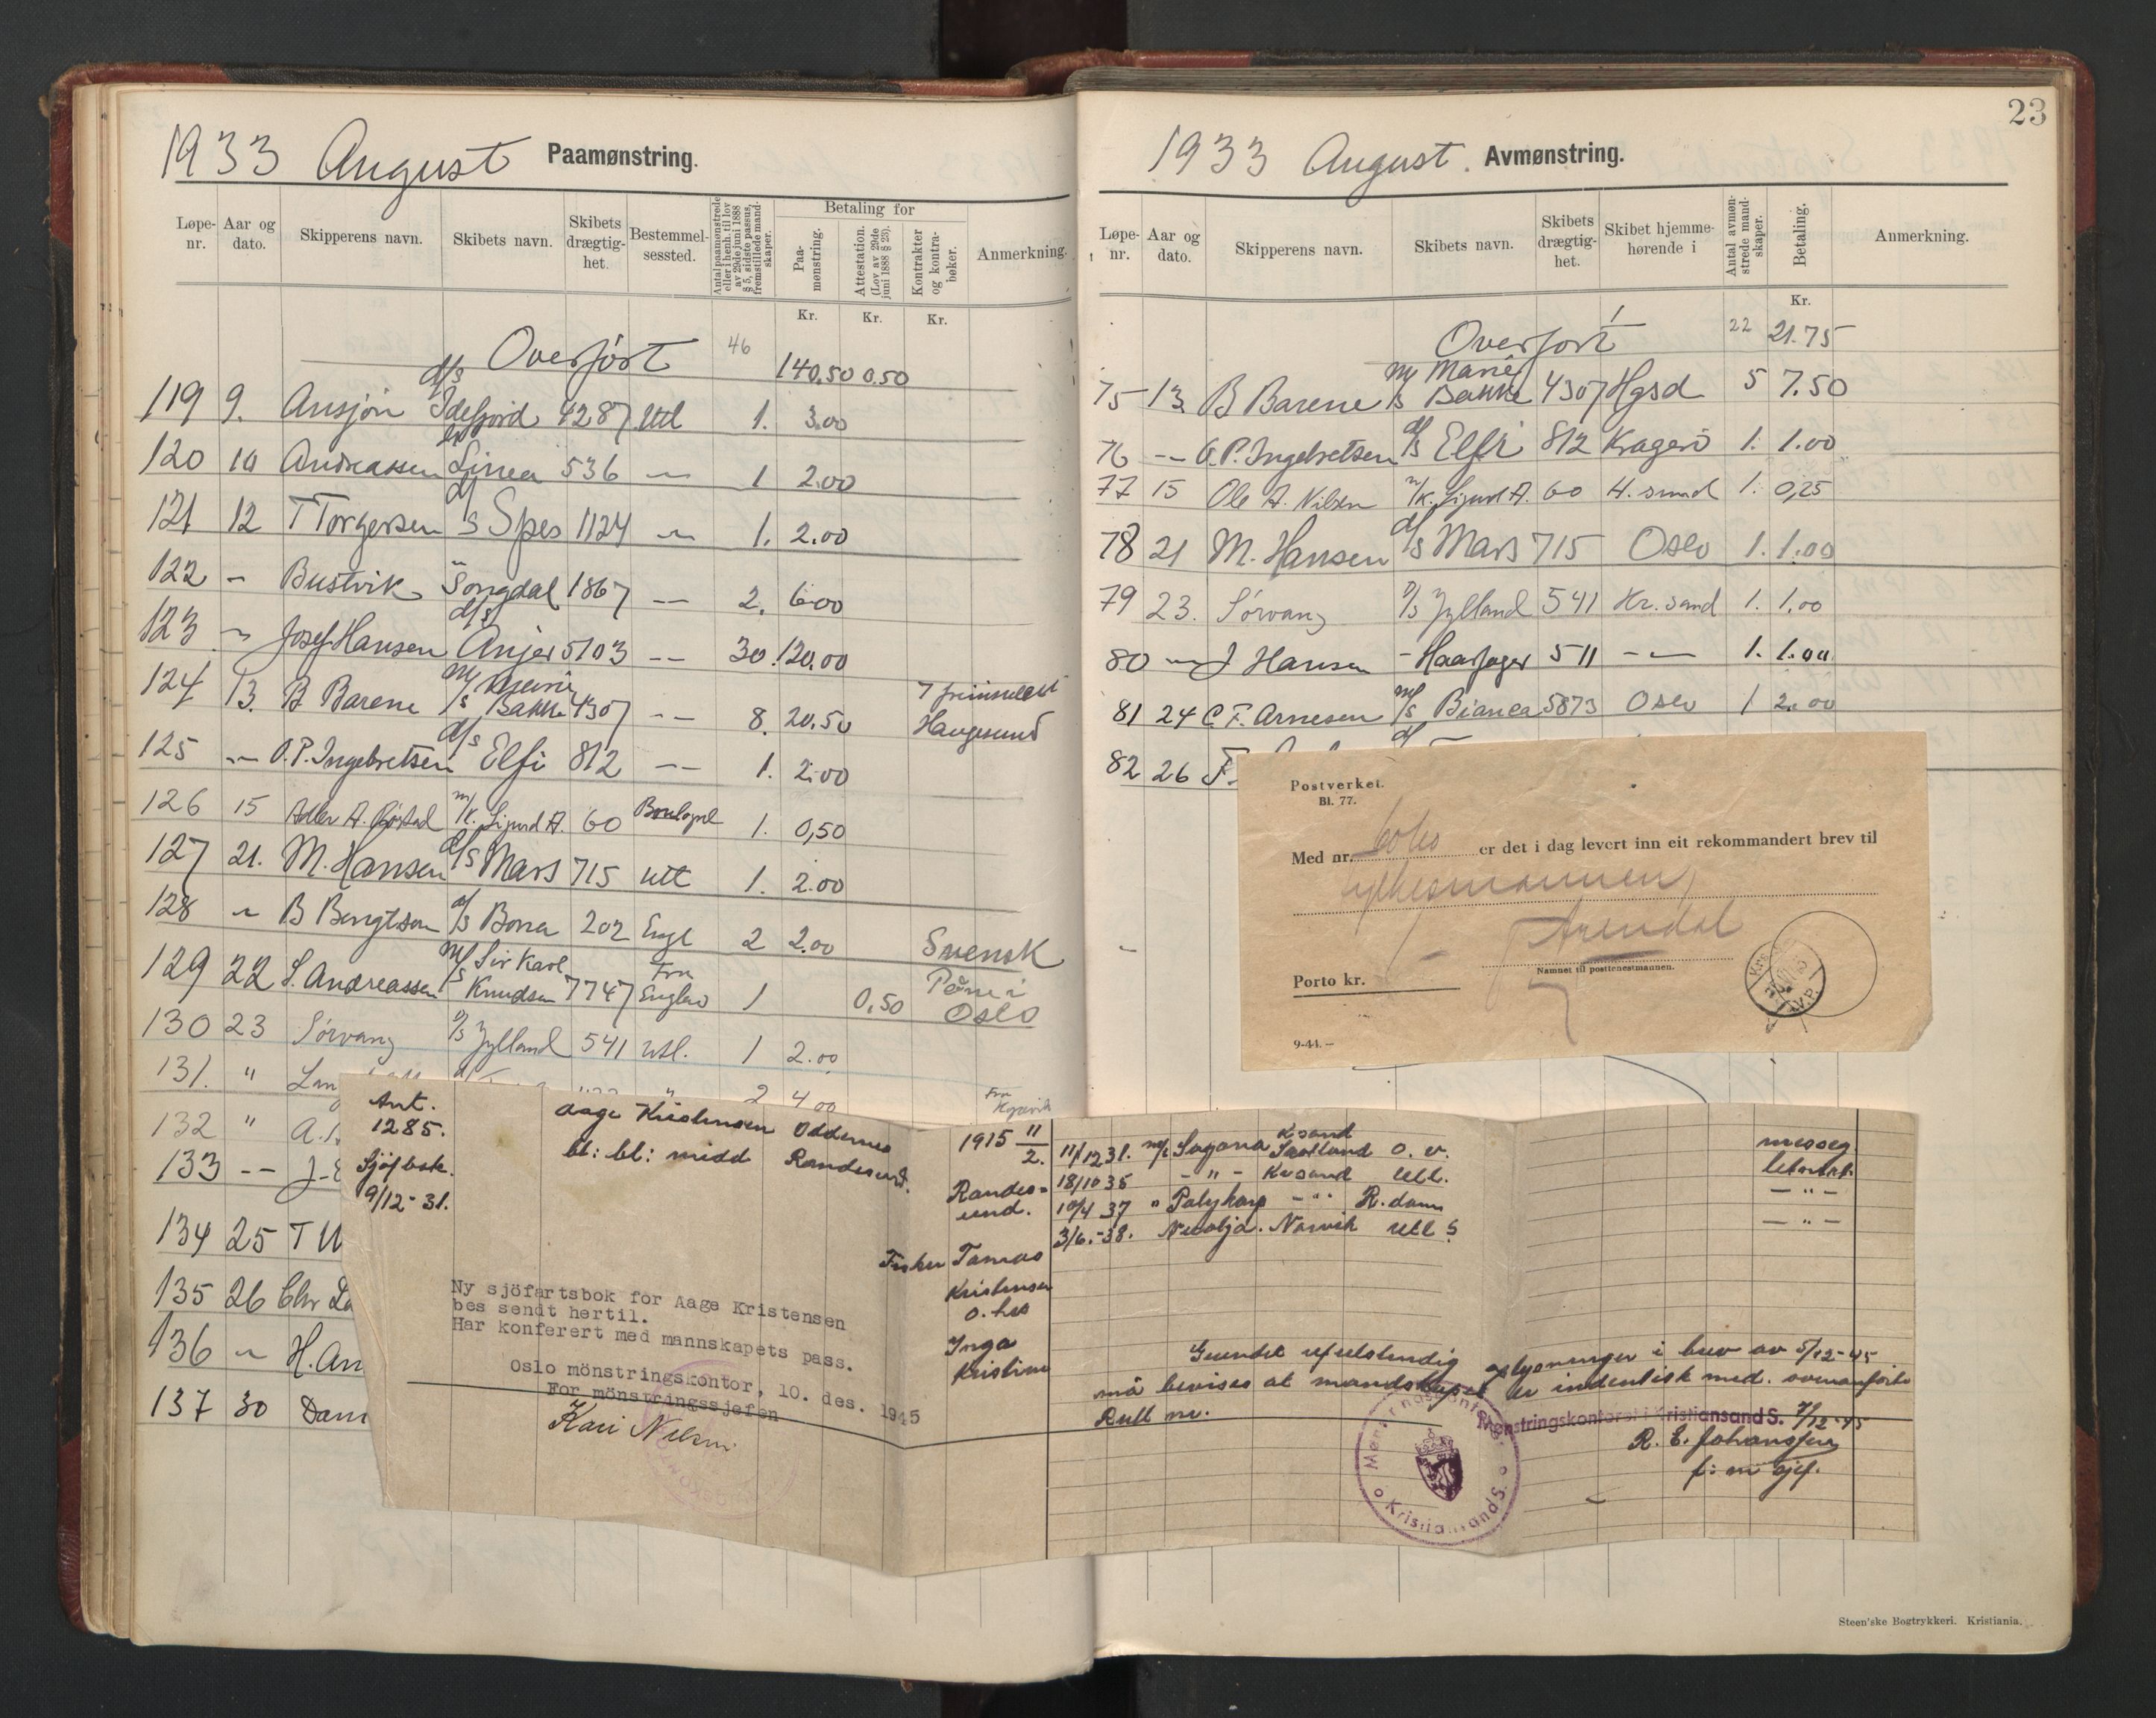 1933 August Paamønstring.
Løpe-nr. Aar og dato. Skipperens navn. Skibets navn. Skibets drægtig-het. Bestemmel-sessted. Antal paamønstrede eller i henh. til lov av 29de juni 1888 § 5, sidste passus, fremstillede mand-skaper. Betaling for Paa-mønstring. Attestation. (Lov av 29de juni 1888 § 23). Kontrakter og kontra-bøker. Anmerkning.
Kr. Kr. Kr.
Overført 46 140.50 0.50
119 9. Ansjøn d/s Idefjord 4287 Utl 1. 3.00
120 10 Andreassen Linea 536 — 1 2.00
121 12 T Torgersen d/s Spes 1124 — 1. 2.00
122 - Bustvik " Songdal 1867 — 2. 6.00
123 - Josef Hansen d/s Anjer 5103 — 30. 120.00
124 13. B Barene m/s Marie Bakke 4307 — 8. 20.50 7 Haugesund
125 — O.P. Ingebretsen d/s Elfi 812 — 1. 2.00
126 15 Adler A. m/k. Sigurd A. 60 Boulogne 1. 0,50
127 21. M. Hansen d/s Mars 715 utl 1. 2.00
128 - B Bengtson d/s Bona 202 Engl 2 2.00 Svensk
129 22 S. Andreassen m/s Sir Karl Knudsen 7747 Fra England 1 0,50 i Oslo
130 23 Sørvang D/s Jylland 541 Utl. 1 2.00
131. " 2 4.00 Fra
132 " A.
133 — J.
134 25 T
135 26 Chr
136 - H. An
137 30 Dan
Ant. 1285.
Sjøf bok. 9/12-31.
Aage Kristensen Oddernes
bl: bl: midd Randesund.
1915 11/2.
Randesund.
Fisker Tomas
Kristensen
o. hs
Inga
Kristine
11/12 31. m/s Sagona Ksand Saatland o. v. messeg
18/10 35 - " - Krsand Utl. letmatr.
10/4 37 " Polykarp - " - R.dam - " -
3/6.-38. Nuolja. Narvik Utl S - " -
Ny sjöfartsbok for Aage Kristensen
bes sendt hertil.
Har konferert med mannskapets pass.
Oslo mönstringskontor, 10. des. 1945
For mönstringssjefen
Kari Nilsen
Grundet ufulstendig oplysninger i brev av 5/12-45
må bevises at mandskapet er indentisk med. ovenanførte
Rull nr.
Mønstringskontoret i Kristiansand S. 7/12-45
R. E. Johanssen
f: m sjef.
Mønstringskontoret
Kristiansand S.
23
1933 August. Avmønstring.
Løpe-nr. Aar og dato. Skipperens navn. Skibets navn. Skibets drægtig-het. Skibet hjemme-hørende i Antal avmøn-strede mand-skaper. Betaling. Anmerkning.
Kr.
Overført 22 21.75
75 13. B Barene m/s Marie Bakke 4307 Hgsd 5 7.50
76 — O.P. Ingebretsen d/s Elfi 812 Kragerö 1. 1.00
77 15 Ole A. Nilsen m/k. Sigurd A. 60 H. sund 1. 0,25
78 21 M. Hansen d/s Mars 715 Oslo 1. 1.00
79 23. Sørvang D/s Jylland 541 Kr. sand 1. 1,00
80 — J Hansen - Haarfager 511 — 1. 1.00
81 24 C.F. Arnesen m/s Bianca 5873 Oslo 1 2.00
82 26 F.
Postverket.
Bl. 77.
Med nr. er det i dag levert inn eit rekommandert brev til
fylkesmannen,
Arendal
Porto kr.
Namnet til posttenestmannen.
9-44. —
Steen'ske Bogtrykkeri. Kristiania.